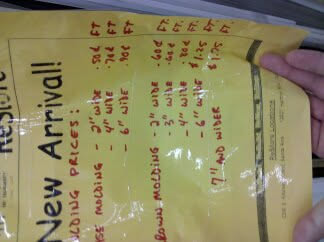 ReStore
New Arrival!
OLDING PRICES:
SE MOLDING - 2" WIDE .50¢ FT
- 4" WIDE .70¢ FT
- 6" WIDE .90¢ FT
ROWN MOLDING - 2" WIDE .60¢ FT.
- 3" WIDE .60¢ FT.
- 4" WIDE .80¢ FT.
- 6" WIDE $1.25 FT.
7" AND WIDER $1.75 FT.